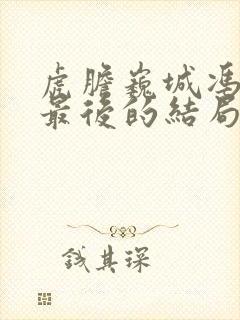 虎膽巍城馮
最後的結局
钱其琛